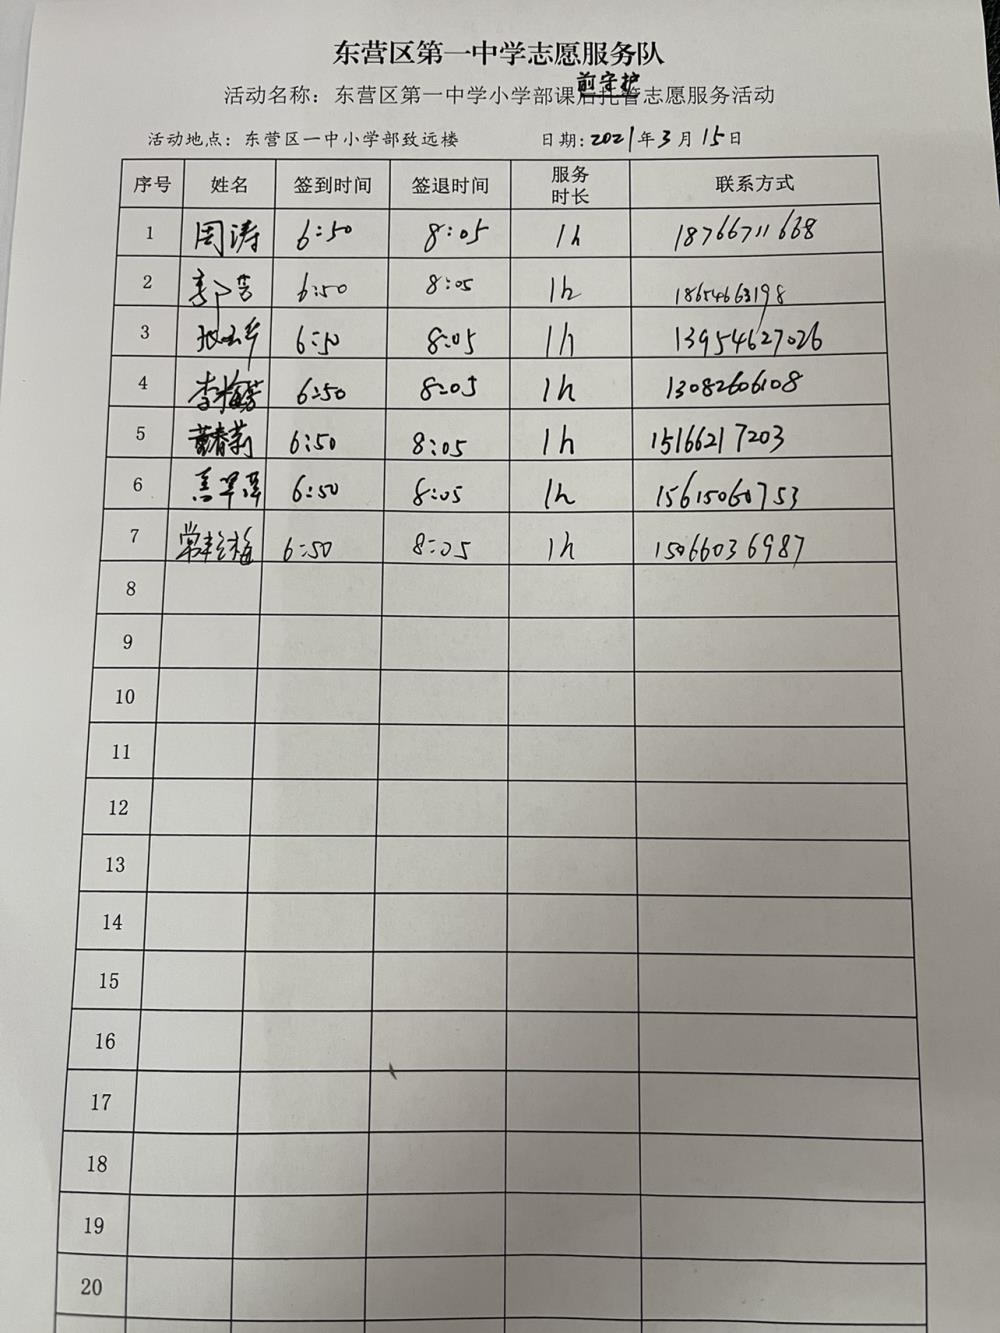 东营区第一中学志愿服务队
前守护
活动名称：东营区第一中学小学部课后托管志愿服务活动
活动地点：东营区一中小学部致远楼 日期：2021年3月15日
序号 姓名 签到时间 签退时间 服务时长 联系方式
1 周涛 6:50 8:05 1h 18766711668
2 郭芸 6:50 8:05 1h 18654663198
3 6:50 8:05 1h 13954627026
4 李梅芳 6:50 8:05 1h 13082606108
5 黄春莉 6:50 8:05 1h 15166217203
6 6:50 8:05 1h 15615060753
7 6:50 8:05 1h 15066036987
8
9
10
11
12
13
14
15
16
17
18
19
20